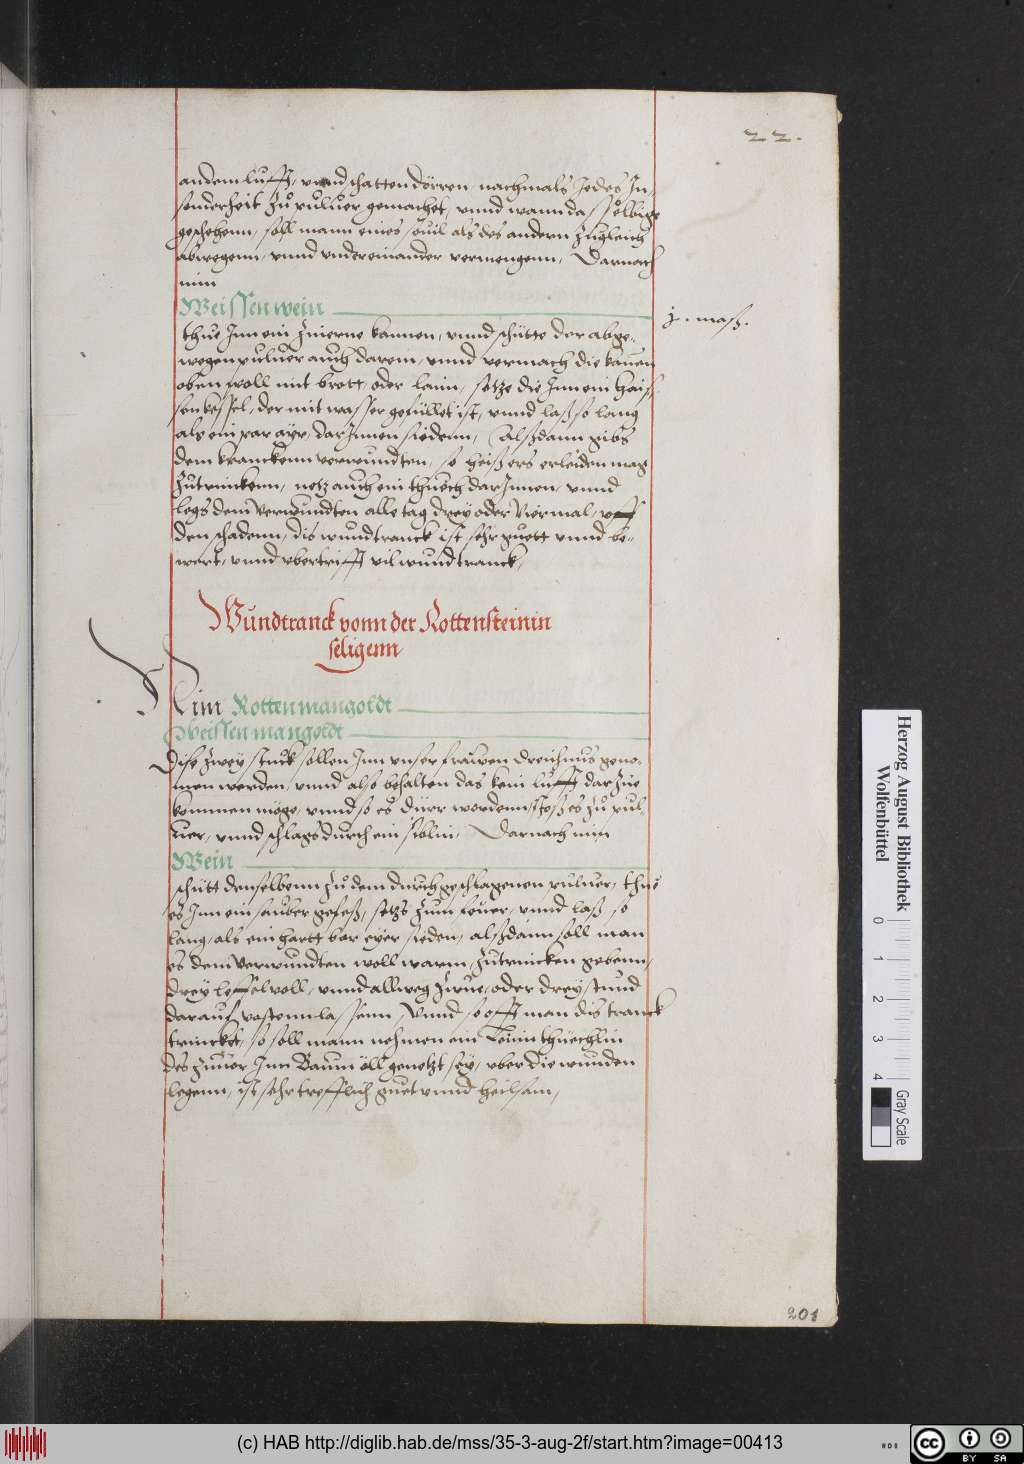 22.
andem lufft, vnnd schatten dörren nachmals Jedes In
sonderheit zů puluer gemachet, vnnd wann dasselbige
geschehenn, soll mann eines souil als des andern zugleich
abwegenn, vnnd vndereinander vermengenn, Darnach
nim
Weissen wein
j. maß.
thue Inn ein Zinerne kannen, vnnd schütte der abge-
wegen puluer auch darein, vnnd vermach die kannen
oben woll mit brott, oder laim, setze die Inn ein hais-
sen kessel, der mit wasser gefüllet ist, vnnd laß so lang
als ein par ayr, darInnen siedenn, Alßdann gibs
dem kranckenn verwundten, so heiß ers erleiden mag
Zutrinckenn, netz auch ein thuech darInnen, vnnd
legs dem verwundten alle tag drey oder Viermal, vff
den schadenn, dis wundtranck ist sehr guett vnnd be-
wert, vnnd vbertrifft vil wundtranck,
Wundtranck vonn der Rottensteinin
seligenn
Nim Rotten mangoldt
Weissen mangoldt
Dise zwey stuck sollen Inn vnser frawen dreissigs geno-
men werden, vnnd also behalten das kein lufft darzue
kommen möge, vnnd so es dürr wordenn, stoß es zů pul-
uer, vnnd schlags durch ein siblin, Darnach nim
Wein
schütt denselbenn zů dem durchgeschlagenen puluer, thue
es Inn ein sauber gefeß, setzs zum feuer, vnnd laß so
lang, als ein hartt bar eyer sieden, alßdann soll man
es dem Verwundten woll warm, zutrincken gebenn,
drey leffel voll, vnnd allweg zwue, oder drey stund
darauf vastenn lassenn, Vnnd so offt man dis tranck
trincket, so soll mann nehmen ein Leinin thuechlin
des zuuor Inn Baum öll genetzt sey, vber die wunden
legenn, ist sehr trefflich guet vnnd heilsam,
201
Herzog August Bibliothek
Wolfenbüttel
0 1 2 3 4
Gray Scale
(c) HAB http://diglib.hab.de/mss/35-3-aug-2f/start.htm?image=00413
cc BY SA